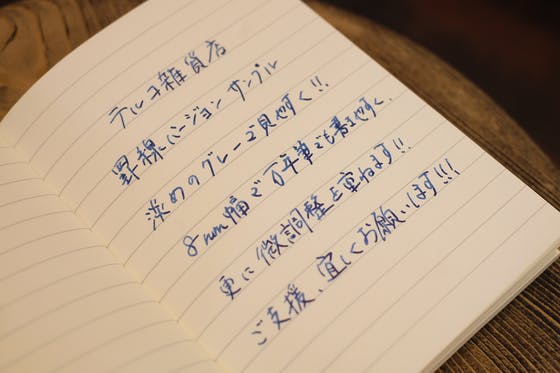 テルコ雑貨店
罫線バージョン サンプル
淡めのグレーで見やすく!!
8mm幅で万年筆でも書きやすく、
更に微調整を重ねます!!
ご支援、宜しくお願いします!!!